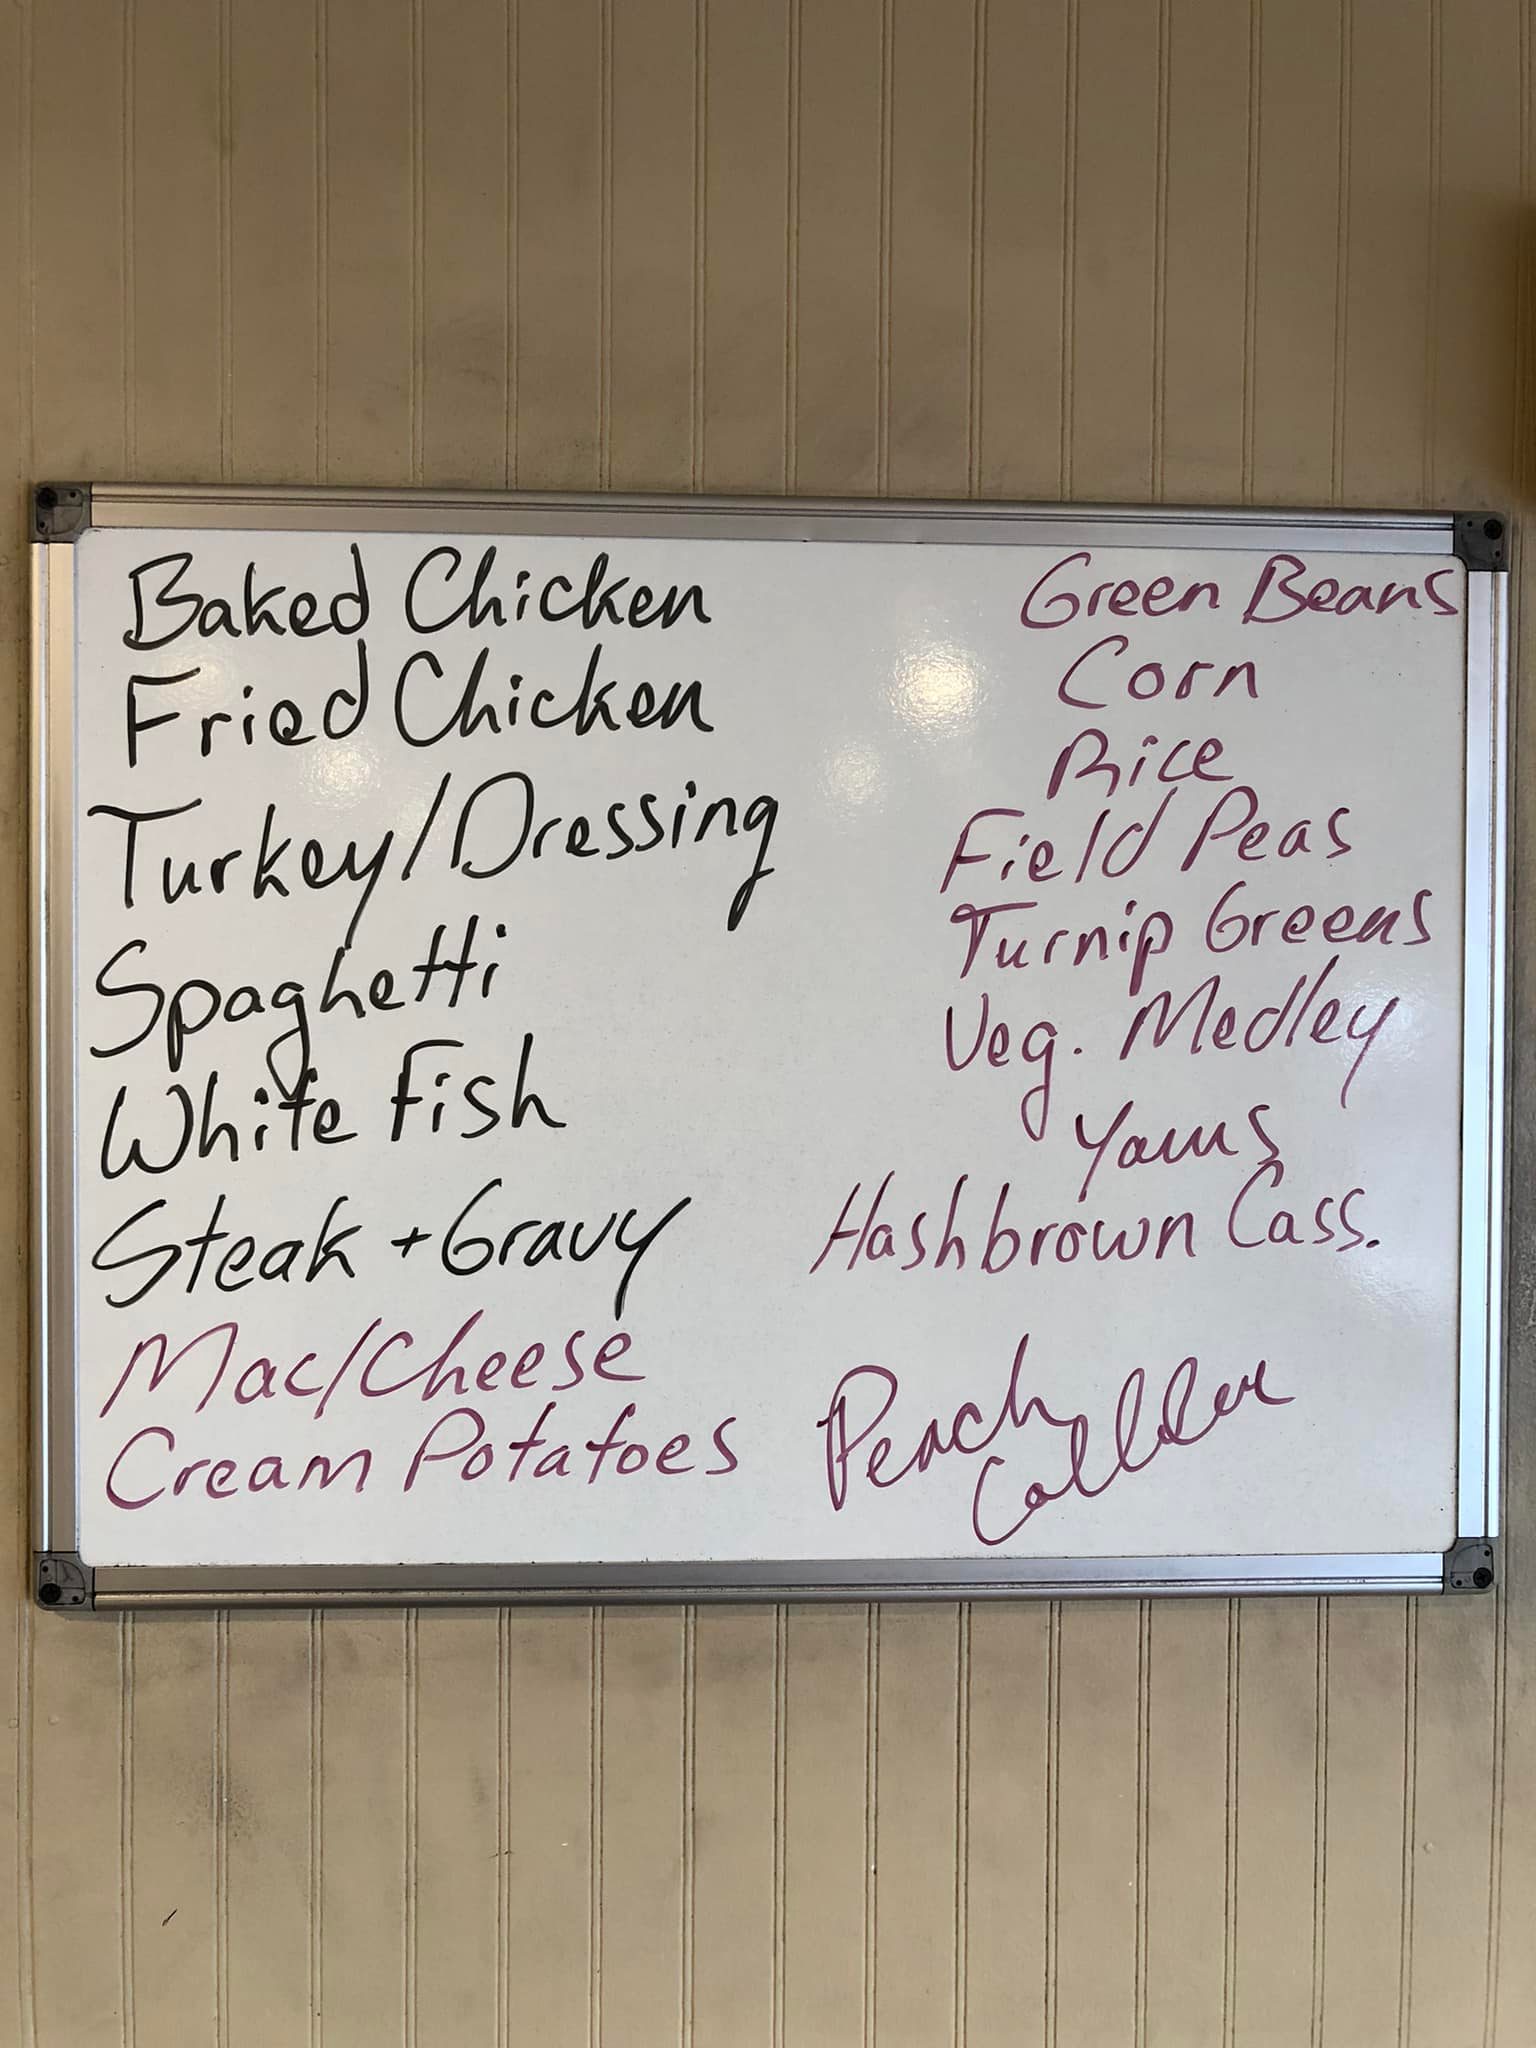 Baked Chicken
Fried Chicken
Turkey/Dressing
Spaghetti
White Fish
Steak + Gravy
Mac/Cheese
Cream Potatoes
Green Beans
Corn
Rice
Field Peas
Turnip Greens
Veg. Medley
Yams
Hashbrown Cass.
Peach
Cobbler